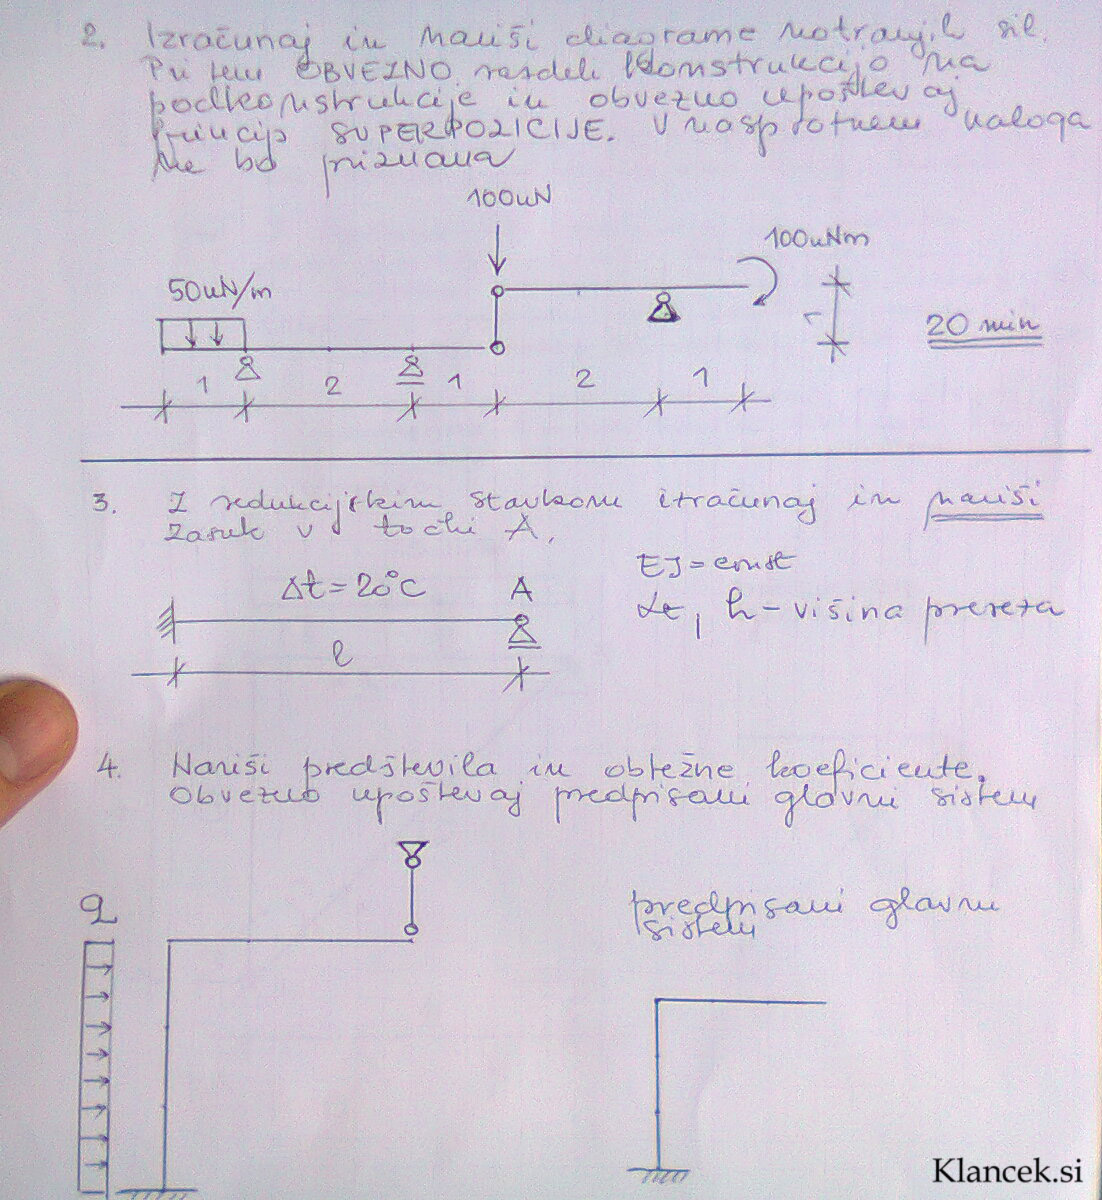 2. Izračunaj in nariši diagrame notranjih sil.
Pri tem OBVEZNO razdeli konstrukcijo na
podkonstrukcije in obvezno upoštevaj
princip SUPERPOZICIJE. V nasprotnem naloga
ne bo priznana
100kN
100kNm
50kN/m
1
20 min
1 2 1 2 1
3. Z redukcijskim stavkom izračunaj in nariši
zasuk v točki A.
EJ=const
Δt=20°C A
αt, h-višina prereza
l
4. Nariši predštevila in obtežne koeficiente.
Obvezno upoštevaj predpisani glavni sistem
q
predpisani glavni
sistem
Klancek.si